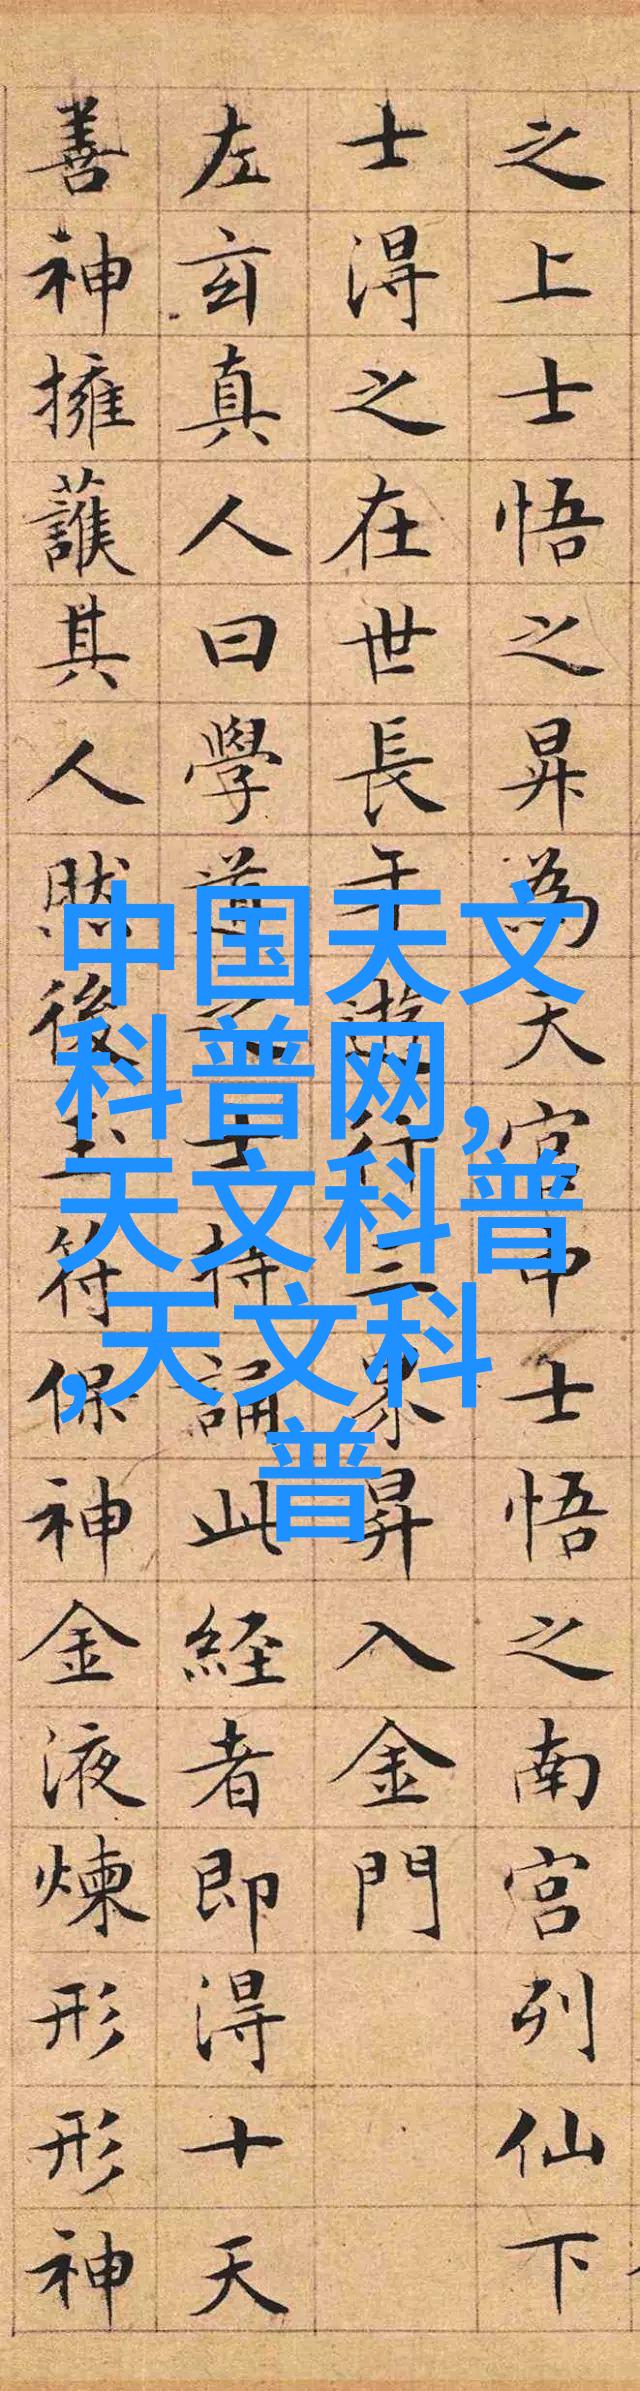 之上士悟之昇為天官中士悟之南宮列仙下
士得之在世長年遊行三界昇入金門
左玄真人曰學道之士持誦此經者即得十天
善神擁護其人然後玉符保神金液煉形形神
中国天文
科普网,
天文科普
,天文科
普